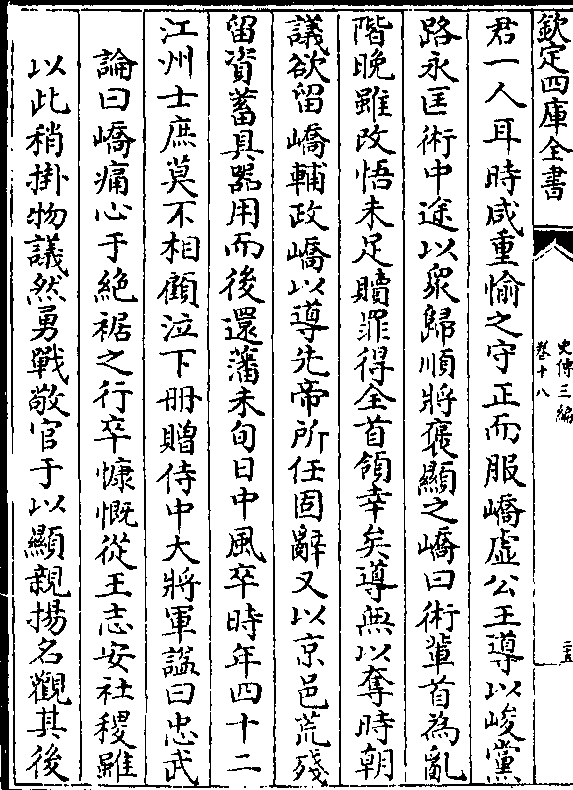 欽定四庫全書
史傳三編
卷十八
三五
君一人耳時咸重愉之守正而服嶠虚公王導以峻黨
路永匡術中途以衆歸順將襃顯之嶠曰術輩首為亂
階晚雖改悟未足贖罪得全首領幸矣導無以奪時朝
議欲留嶠輔政嶠以導先帝所任固辭又以京邑荒殘
留資蓄具器用而後還藩未旬日中風卒時年四十二
江州士庶莫不相顧泣下冊贈侍中大將軍諡曰忠武
論曰嶠痛心于絶裾之行卒慷慨從王志安社稷雖
以此稍掛物議然勇戰敬官于以顯親揚名觀其後